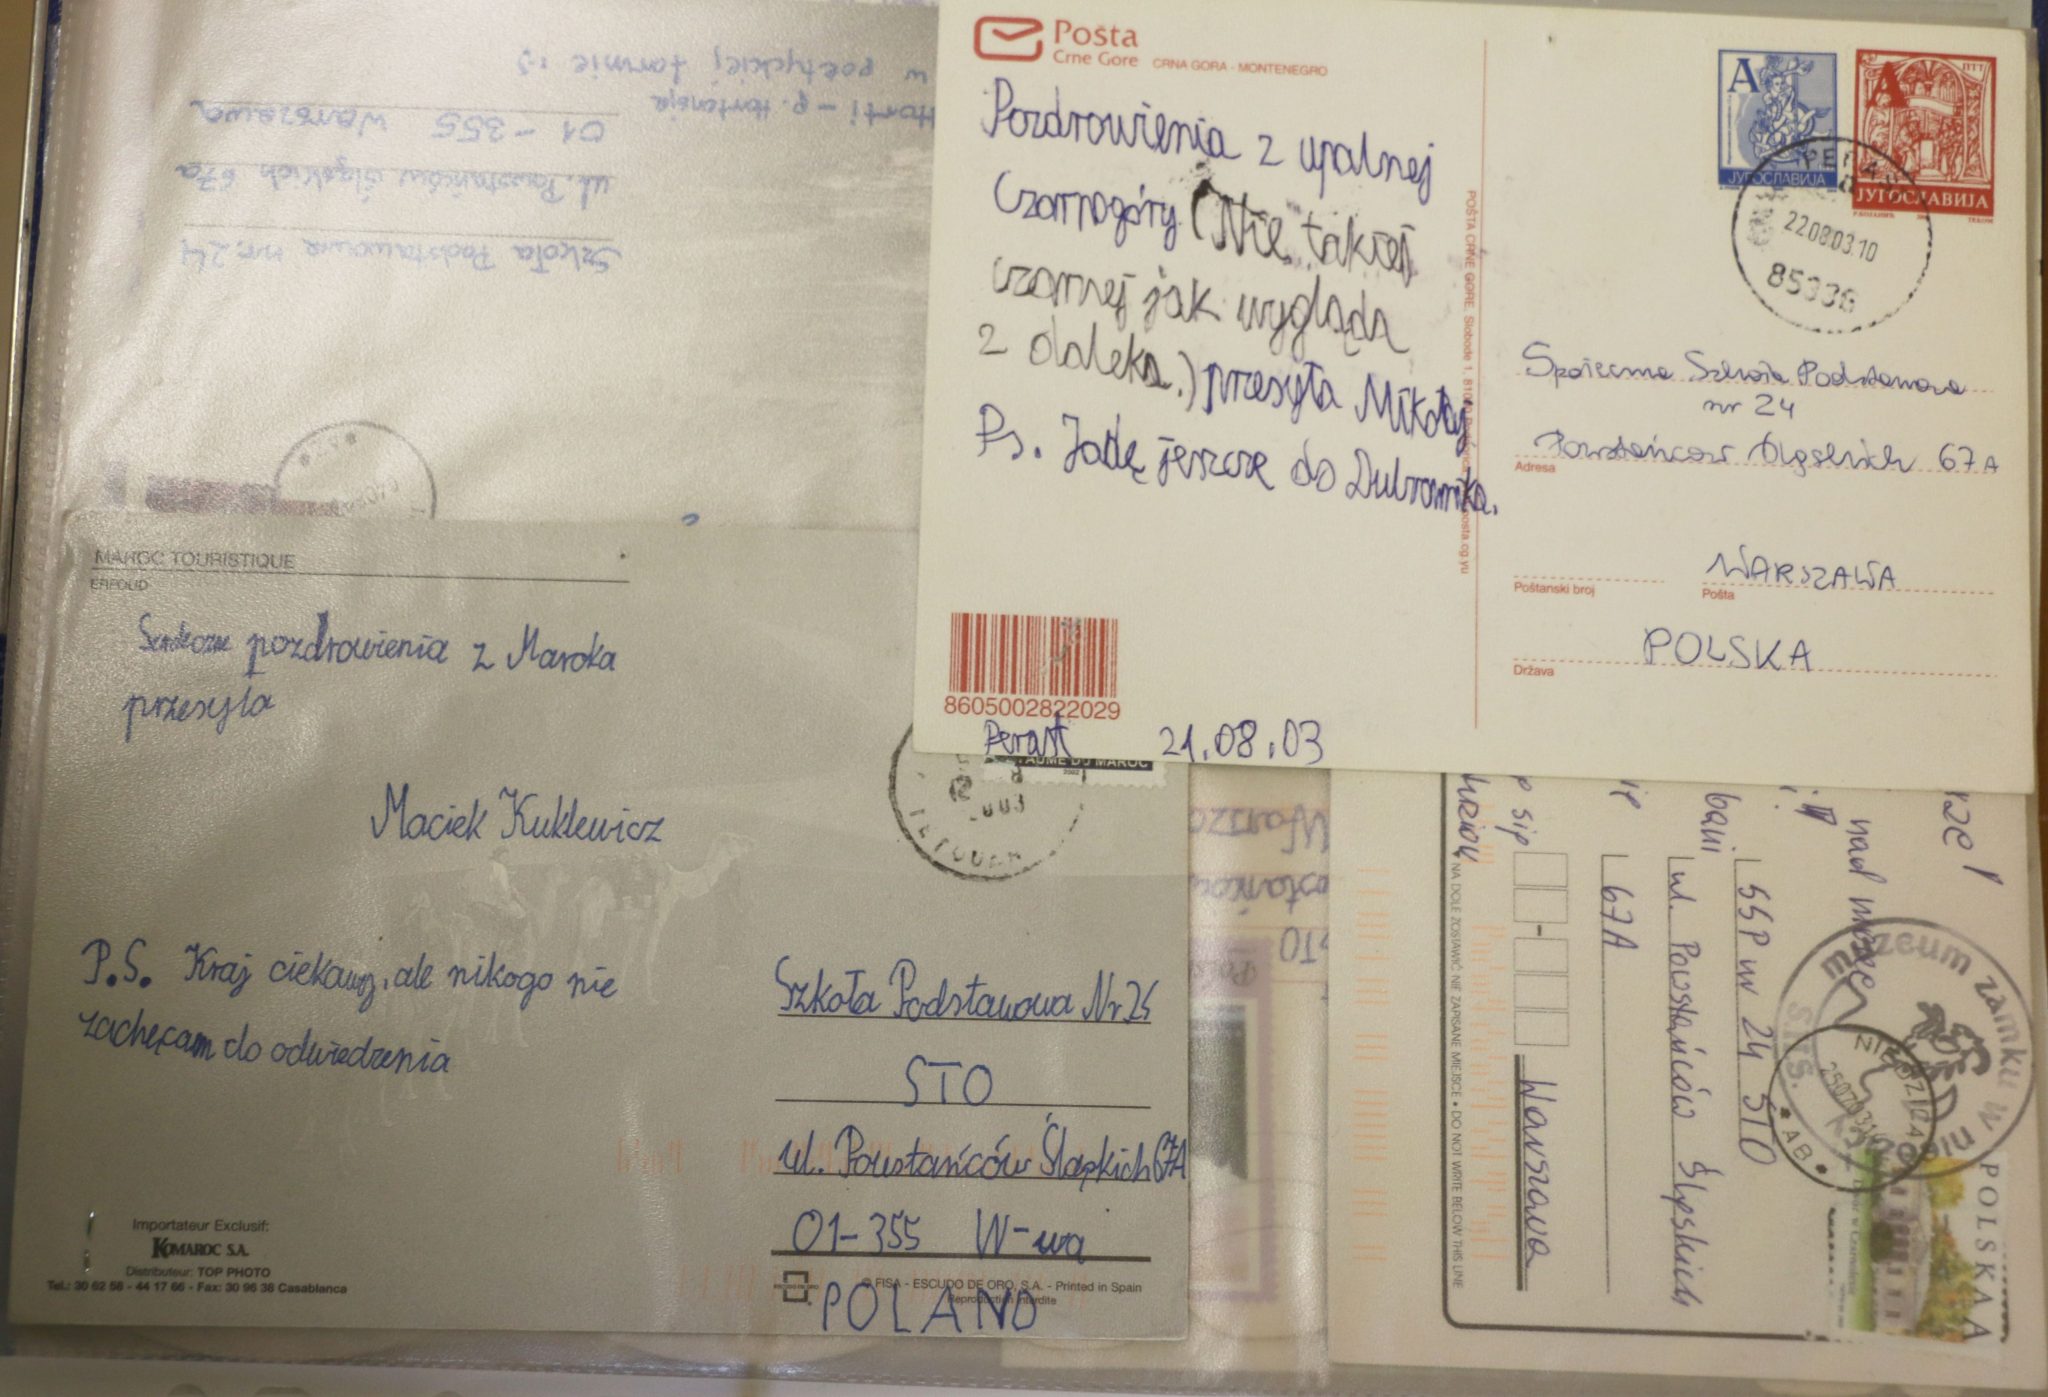 Pošta
Crne Gore CRNA GORA - MONTENEGRO
Pozdrowienia z upalnej
Czarnogóry (Nie takiej
czarnej jak wygląda
z daleka.) przesyła Mikołaj
Ps. Jadę jeszcze do Dubrownika.
8605002822029
Perast 21.08.03
POŠTA CRNE GORE Slobode 1, 810
posta.cg.yu
A
ЈУГОСЛАВИЈА
A
ПТТ
ЈУГОСЛАВИЈА
22.08.03.10
85336
Społeczna Szkoła Podstawowa
nr 24
Powstańców Śląskich 67A
Adresa
WARSZAWA
Poštanski broj Pošta
POLSKA
Država
Szkoła Podstawowa nr. 24
ul. Powstańców Śląskich 67a
01-355 Warszawa
Horti - p. Hortensja
w poetyckiej formie :)
MAROC TOURISTIQUE
ERFOUD
Serdeczne pozdrowienia z Maroka
przesyła
Maciek Kuklewicz
P.S. Kraj ciekawy, ale nikogo nie
zachęcam do odwiedzenia
Importateur Exclusif:
KOMAROC S.A.
Distributeur: TOP PHOTO
Tel.: 30 62 58 - 44 17 66 - Fax: 30 96 36 Casablanca
AUME DU MAROC
2002
TETOUAN
Szkoła Podstawowa Nr 24
STO
ul. Powstańców Śląskich 67A
01-355 W-wa
© FISA - ESCUDO DE ORO, S.A. - Printed in Spain
Reproduction interdite
POLAND
STO
nad morze
SSP nr 24 STO
ul. Powstańców Śląskich
67A
Warszawa
NA DOLE ZOSTAWIĆ NIE ZAPISANE MIEJSCE • DO NOT WRITE BELOW THIS LINE
muzeum zamku w niedzicy
S.H.S.
NIEDZICA
AB
POLSKA